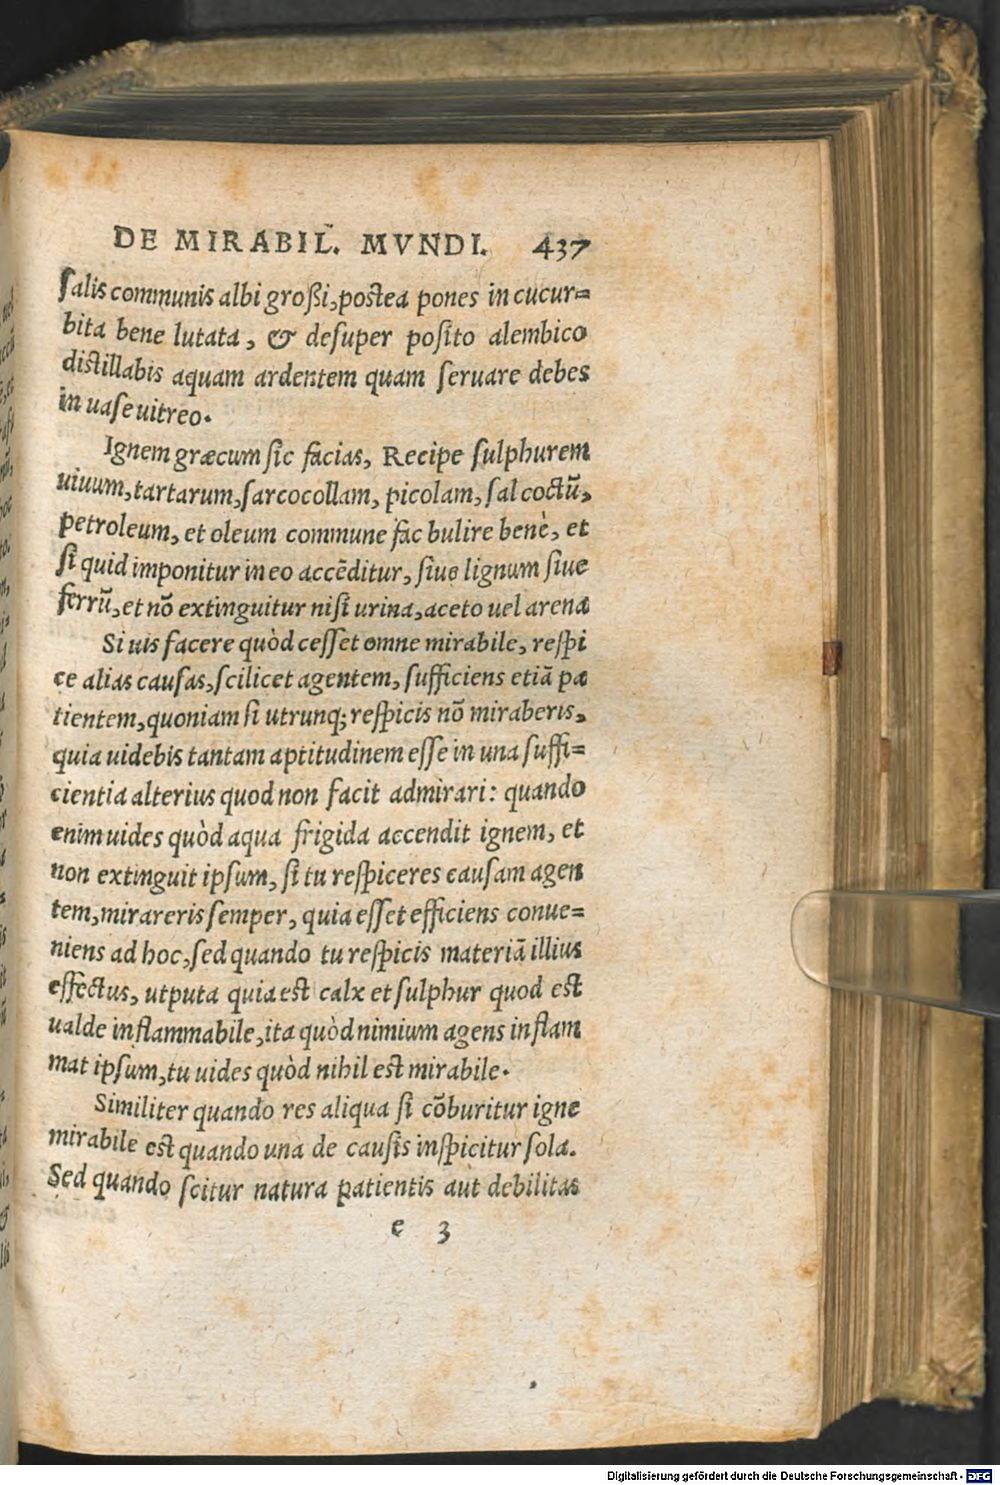 DE MIRABIL. MVNDI. 437
ſalis communis albi großi, poſtea pones in cucur=
bita bene lutata, & deſuper poſito alembico
diſtillabis aquam ardentem quam ſeruare debes
in uaſe uitreo.
Ignem græcum ſic facias, Recipe ſulphurem
uiuum, tartarum, ſarcocollam, picolam, ſal coctū,
petroleum, et oleum commune fac bulire benè, et
ſi quid imponitur in eo accēditur, ſiue lignum ſiue
ferrū, et nō extinguitur niſi urina, aceto uel arena
Si uis facere quòd ceſſet omne mirabile, reſpi
ce alias cauſas, ſcilicet agentem, ſufficiens etiā pa
tientem, quoniam ſi utrunq; reſpicis nō miraberis,
quia uidebis tantam aptitudinem eſſe in una ſuffi=
cientia alterius quod non facit admirari: quando
enim uides quòd aqua frigida accendit ignem, et
non extinguit ipſum, ſi tu reſpiceres cauſam agen
tem, mirareris ſemper, quia eſſet efficiens conue=
niens ad hoc, ſed quando tu reſpicis materiā illius
effectus, utputa quia eſt calx et ſulphur quod eſt
ualde inflammabile, ita quòd nimium agens inflam
mat ipſum, tu uides quòd nihil eſt mirabile.
Similiter quando res aliqua ſi cōburitur igne
mirabile eſt quando una de cauſis inſpicitur ſola.
Sed quando ſcitur natura patientis aut debilitas
e 3
Digitalisierung gefördert durch die Deutsche Forschungsgemeinschaft - DFG